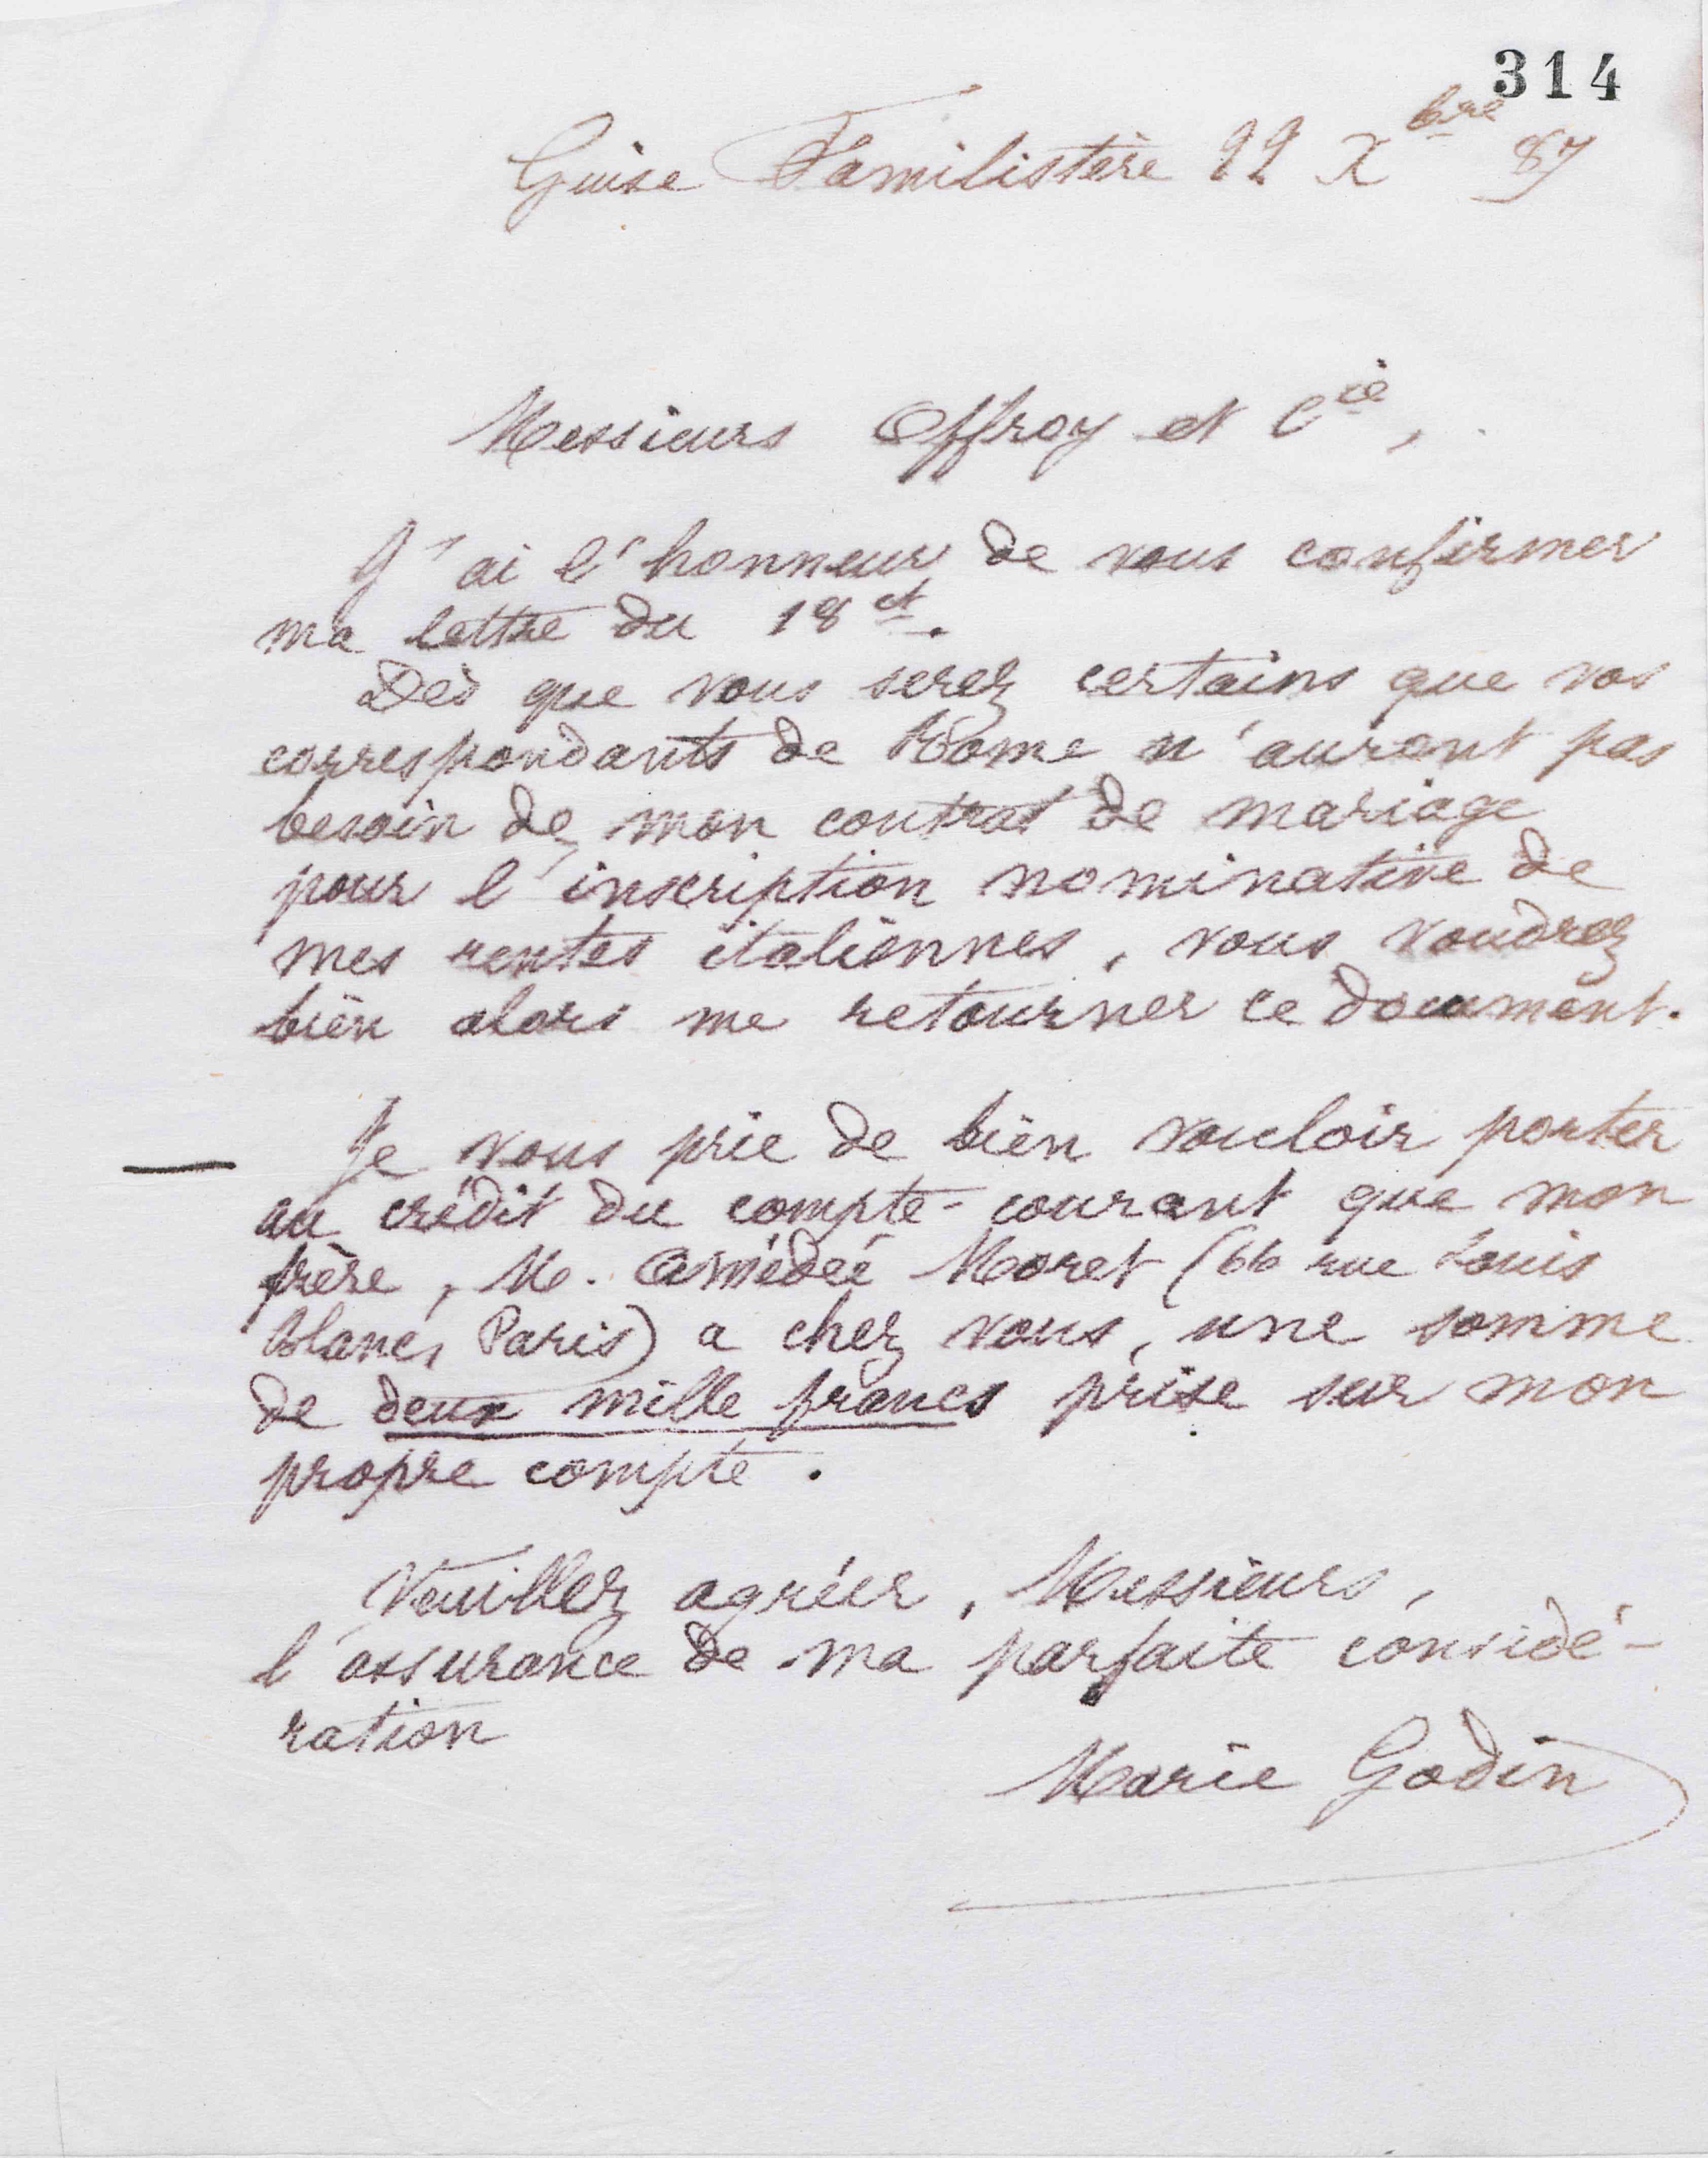 314
Guise Familistère 22 Xbre 87
Messieurs Offroy et Cie,
J'ai l'honneur de vous confirmer
ma lettre du 18 ct.
Dès que vous serez certains que vos
correspondants de Rome n'auront pas
besoin de mon contrat de mariage
pour l'inscription nominative de
mes rentes italiennes, vous voudrez
bien alors me retourner ce document.
Je vous prie de bien vouloir porter
au crédit du compte-courant que mon
frère, M. Amédée Moret (66 rue Louis
Blanc, Paris) a chez vous, une somme
de deux mille francs prise sur mon
propre compte.
Veuillez agréer, Messieurs,
l'assurance de ma parfaite considé-
ration
Marie Godin